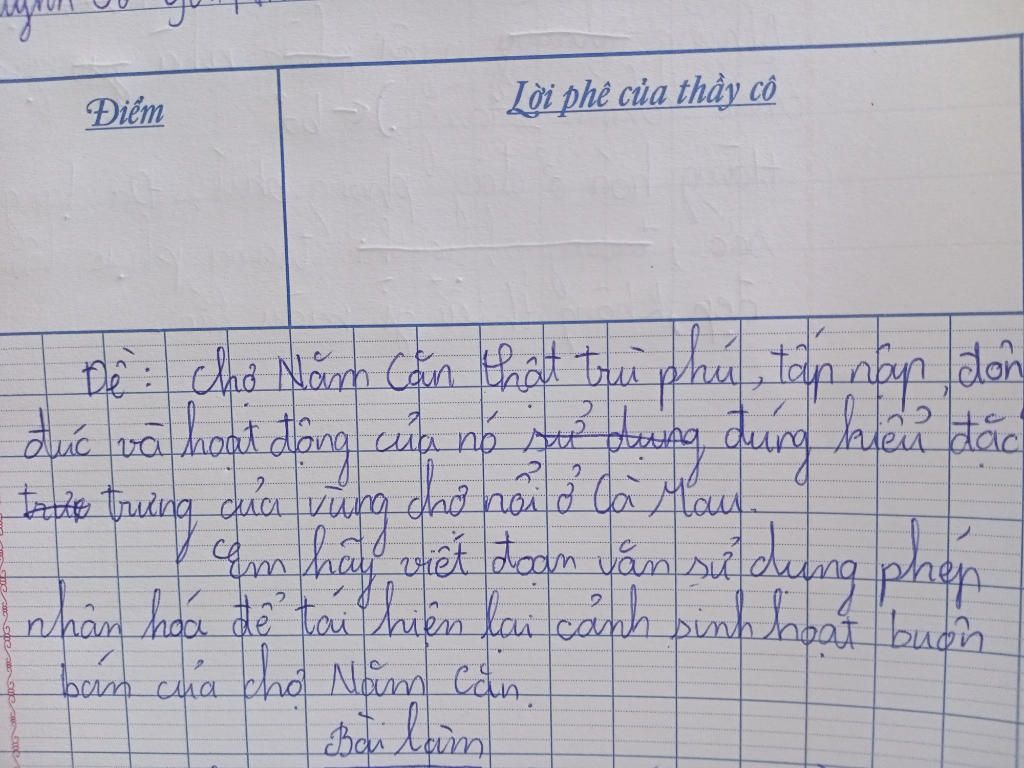 Điểm
Lời phê của thầy cô
Đề: Chợ Năm Căn thật trù phú, tấp nập, đôn
đúc và hoạt động của nó sử dụng đúng hiểu đặc
trưng của vùng chợ nổi ở Cà Mau.
Em hãy viết đoạn văn sử dung phép
nhân hoá để tái hiện lại cảnh sinh hoạt buôn
bán của chợ Năm Căn.
Bài làm